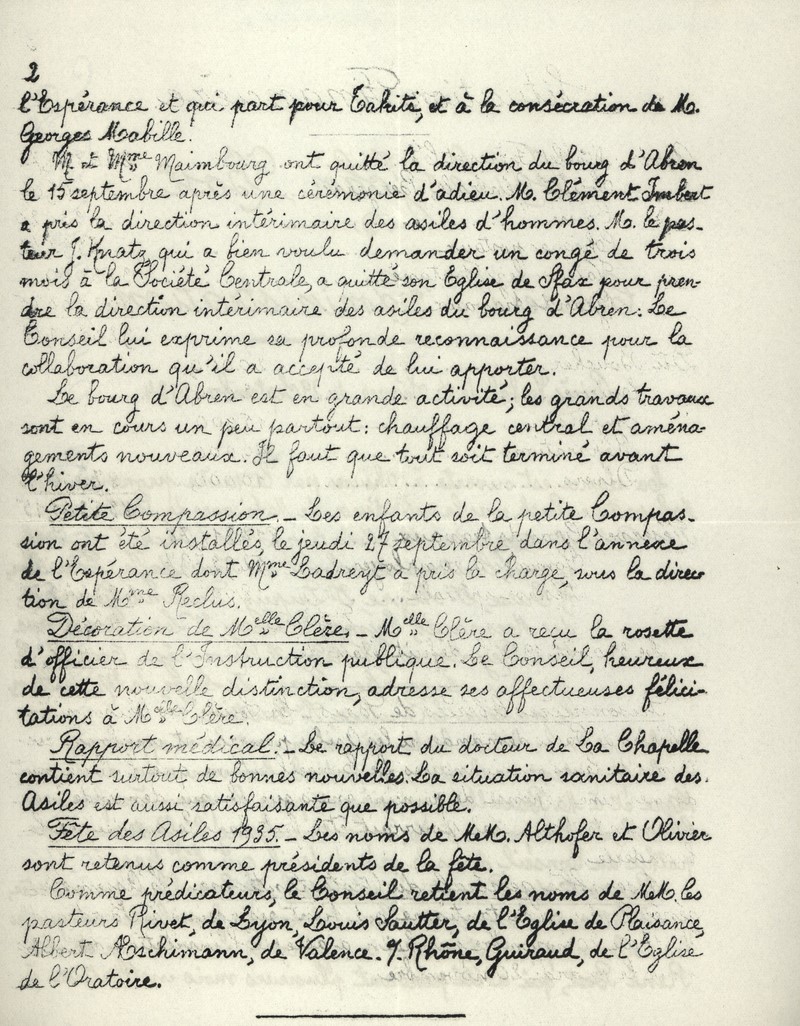 2
l'Espérance et qui part pour Tahiti, et à la consécration de M.
Georges Mabille.
M. et Mme Maimbourg ont quitté la direction du bourg d'Abren
le 15 septembre après une cérémonie d'adieu. M. Clément Imbert
a pris la direction intérimaire des asiles d'hommes. M. le pas-
teur J. Knatz qui a bien voulu demander un congé de trois
mois à la Société Centrale, a quitté son Eglise de Sfax pour pren-
dre la direction intérimaire des asiles du bourg d'Abren. Le
Conseil lui exprime sa profonde reconnaissance pour la
collaboration qu'il a accepté de lui apporter.
Le bourg d'Abren est en grande activité; les grands travaux
sont en cours un peu partout: chauffage central et aména-
gements nouveaux. Il faut que tout soit terminé avant
l'hiver.
Petite Compassion._ Les enfants de la petite Compas-
sion ont été installés, le jeudi 27 septembre, dans l'annexe
de l'Espérance dont Mme Ladreyt a pris la charge, sous la direc-
tion de Mme Reclus.
Décoration de Melle Clère._ Melle Clère a reçu la rosette
d'officier de l'Instruction publique. Le Conseil, heureux
de cette nouvelle distinction, adresse ses affectueuses félici-
tations à Melle Clère.
Rapport médical._ Le rapport du docteur de La Chapelle
contient surtout de bonnes nouvelles. La situation sanitaire des
Asiles est aussi satisfaisante que possible.
Fête des Asiles 1935._ Les noms de MeM. Althofer et Olivier
sont retenus comme présidents de la fête.
Comme prédicateurs, le Conseil retient les noms de MeM. les
pasteurs Rivet, de Lyon, Louis Sautter, de l'Eglise de Plaisance,
Albert Æschimann, de Valence s/ Rhône, Guiraud, de l'Eglise
de l'Oratoire.